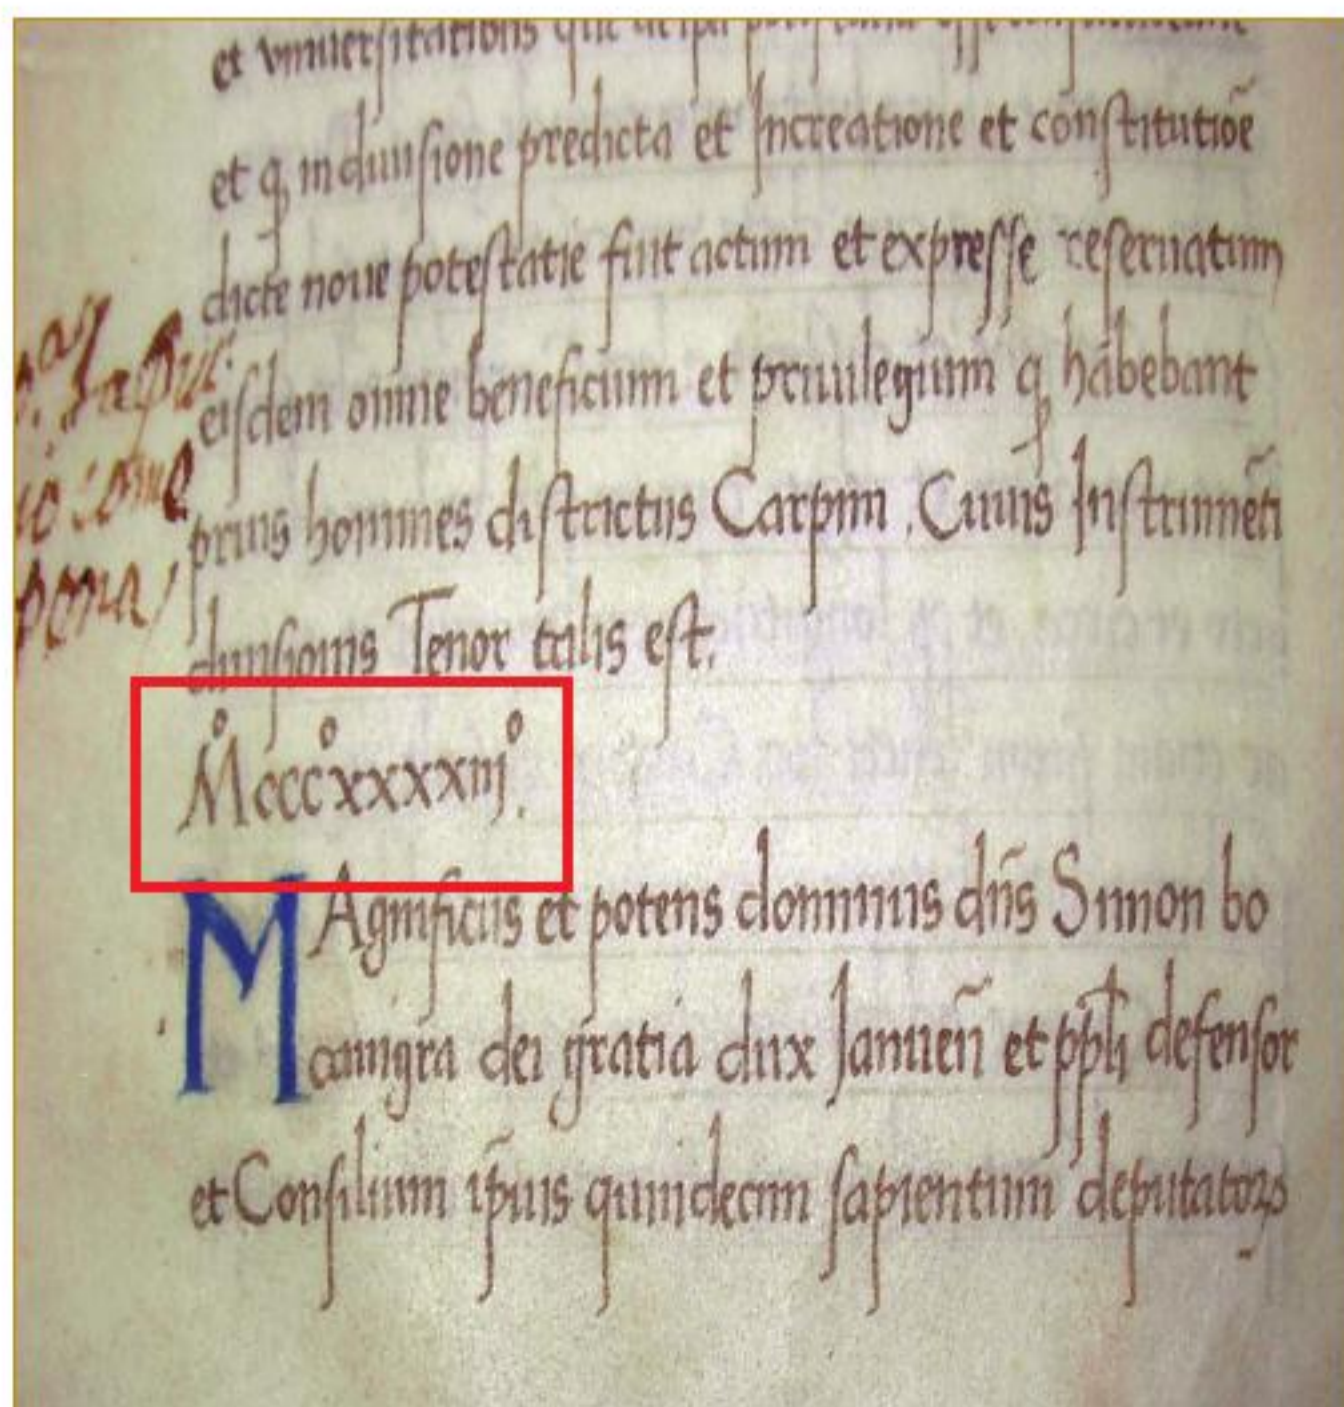 et vniuersitationis que
et q̨ indiuisione predicta et Increatione et constitutiõe
dicte noue potestatie fuit actum et expresse reseruatum
eisdem omne beneficium et priuilegium q̨ habebant
prius homines districtus Carpini . Cuius Instrumẽti
diuisionis Tenor talis est.
M̊ccc̊xxxxiij̊.
MAgnificus et potens dominus dñs Simon bo
canigra dei gratia dux Januen̄ et pp̄li defensor
et Consilium ip̄ius quindecim sapientum deputatoꝝ